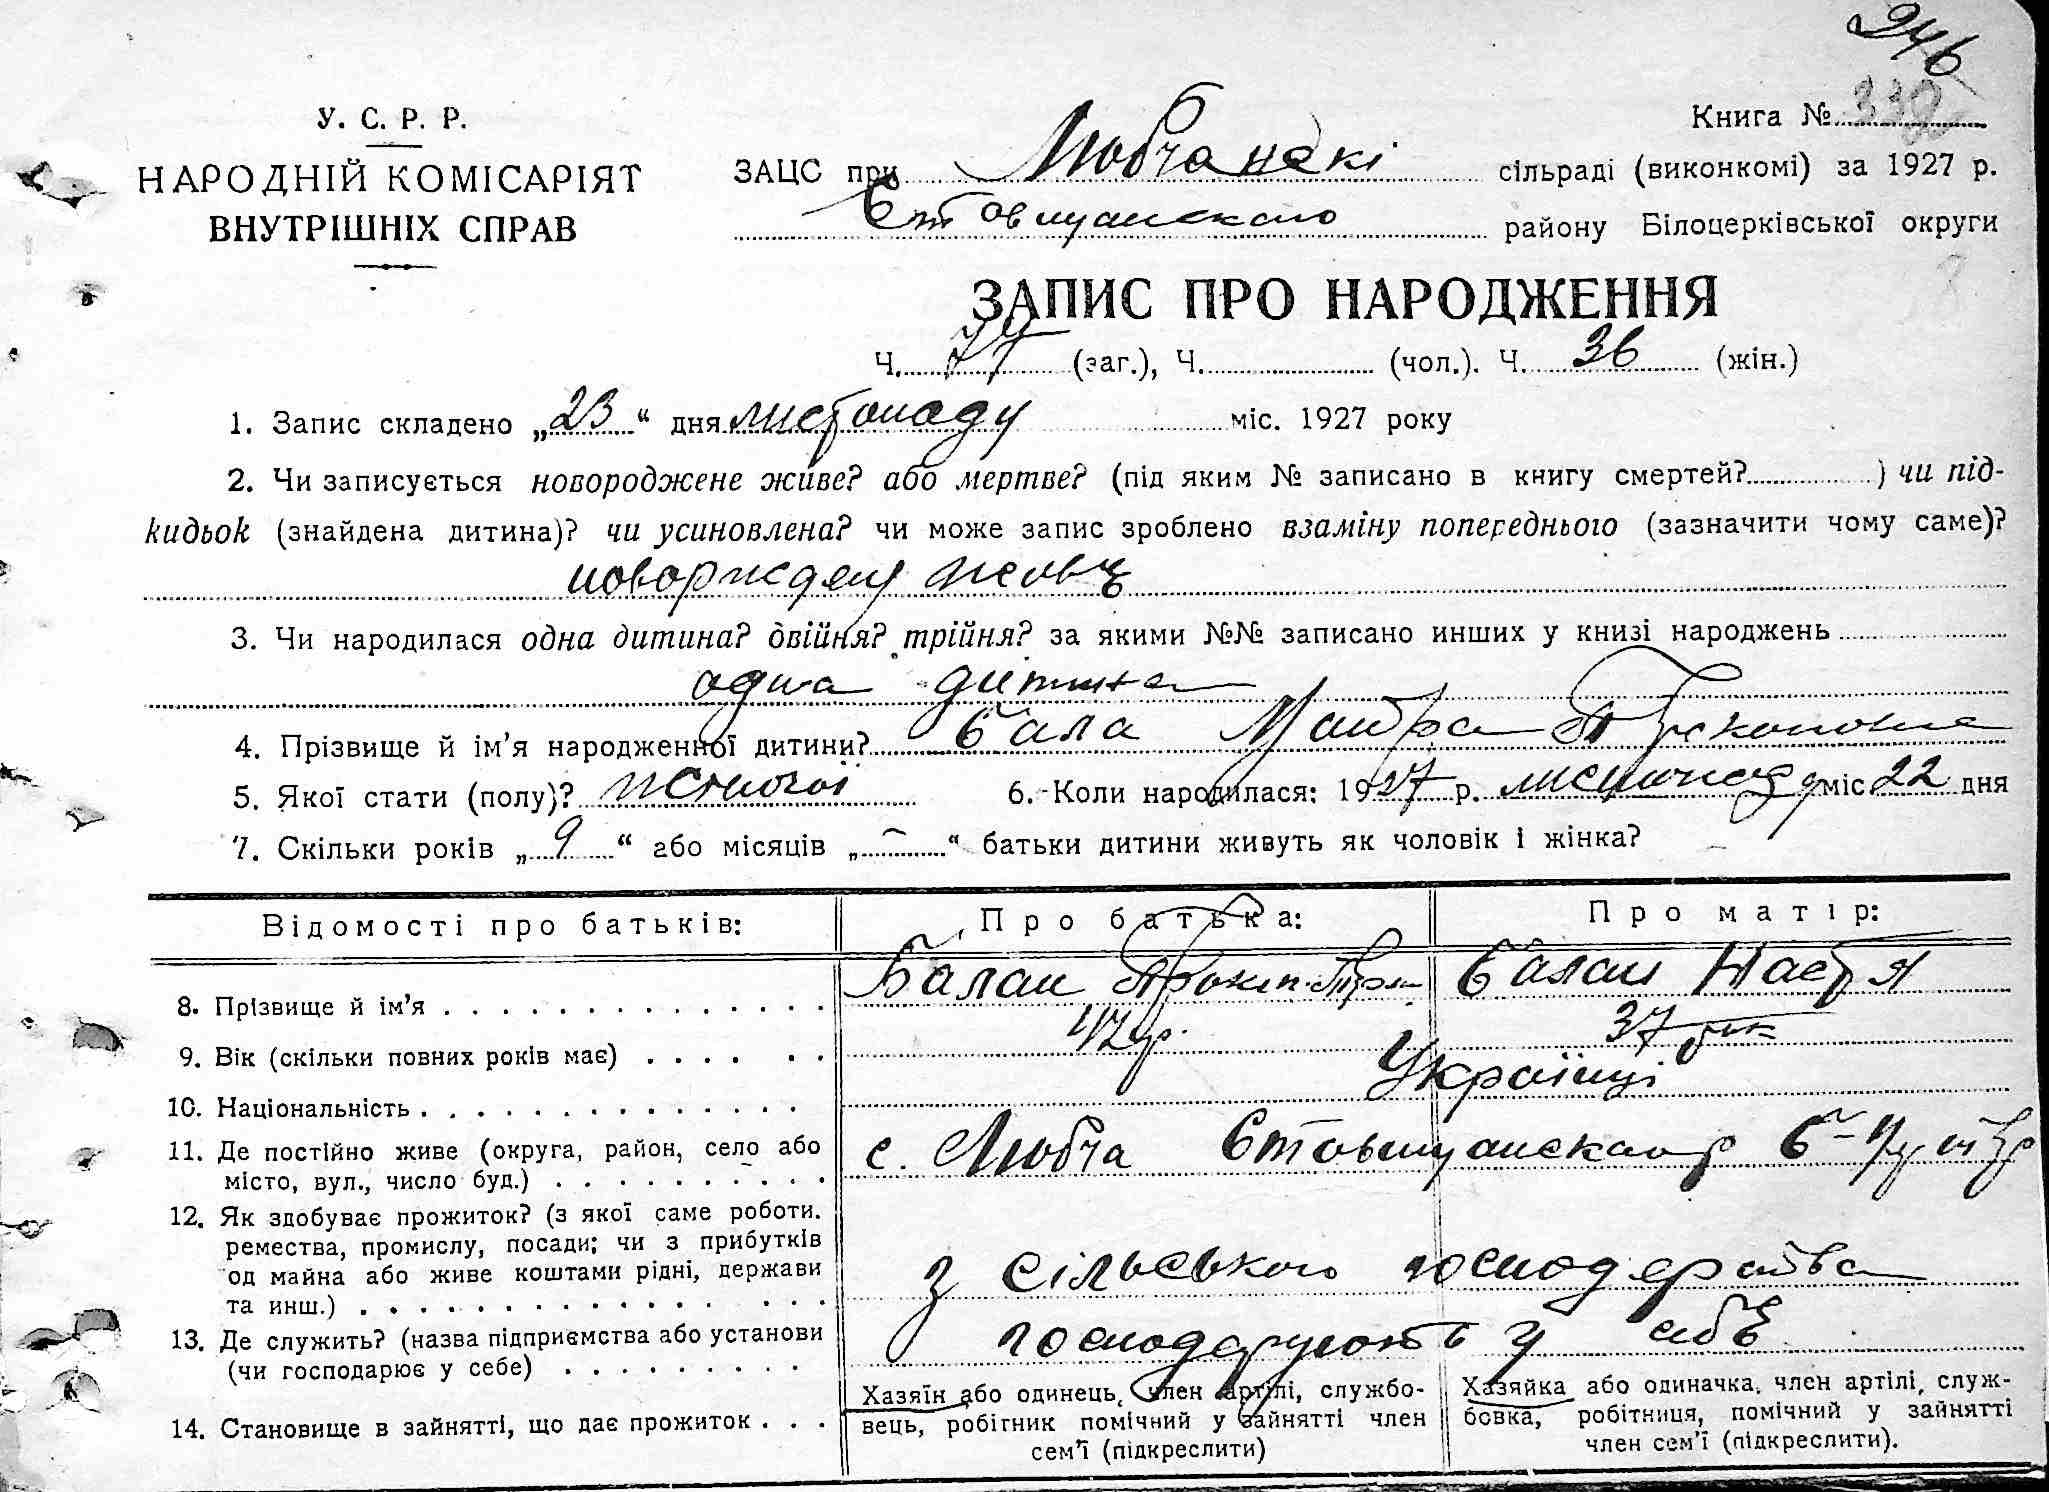 246
У. С. Р. Р.
НАРОДНІЙ КОМІСАРІЯТ
ВНУТРІШНІХ СПРАВ
Книга № 332
ЗАЦС при Любчанскі сільраді (виконкомі) за 1927 р.
району Білоцерківської округи
ЗАПИС ПРО НАРОДЖЕННЯ
Ч. 77 (заг.), Ч. (чол.). Ч. 36 (жін.)
1. Запис складено „23“ дня листопаду міс. 1927 року
2. Чи записується новороджене живе? або мертве? (під яким № записано в книгу смертей? ) чи під-
кидьок (знайдена дитина)? чи усиновлена? чи може запис зроблено взаміну попереднього (зазначити чому саме)?
3. Чи народилася одна дитина? двійня? трійня? за якими №№ записано инших у книзі народжень
одна дитина
4. Прізвище й ім’я народженної дитини?
5. Якої стати (полу)? жіночої 6. Коли народилася: 1927 р. листопаду міс 22 дня
7. Скільки років „9“ або місяців „–“ батьки дитини живуть як чоловік і жінка?
Відомості про батьків: Про батька: Про матір:
8. Прізвище й ім’я Балан Балан Настя
9. Вік (скільки повних років має) 42 р. 37 рік
10. Національність Українці
11. Де постійно живе (округа, район, село або
місто, вул., число буд.) с. Любча
12. Як здобуває прожиток? (з якої саме роботи.
ремества, промислу, посади; чи з прибутків
од майна або живе коштами рідні, держави
та инш.) з сільського господарства
13. Де служить? (назва підприємства або установи
(чи господарює у себе) господарують у себе
14. Становище в зайнятті, що дає прожиток
Хазяїн або одинець, член артілі, службо-
вець, робітник помічний у зайнятті член
сем’ї (підкреслити)
Хазяйка або одиначка, член артілі, служ-
бовка, робітниця, помічний у зайнятті
член сем’ї (підкреслити).